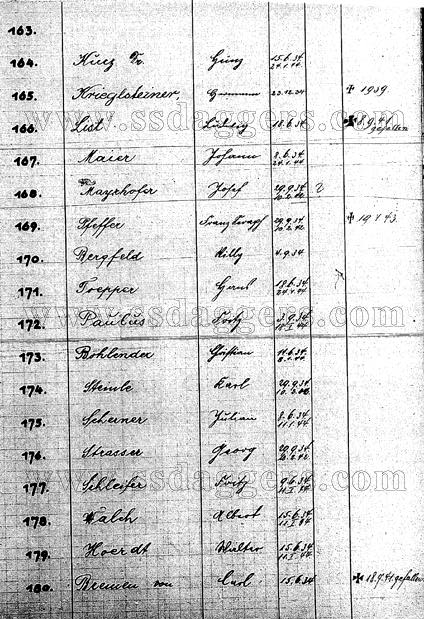 163.
164. Kinz Dr. 15.6.34 24.1.44
165. Krieglsteiner, Hermann 23.12.34 ✝ 1939
166. List Ludwig 18.6.34 ✝ 18.9.41 gefallen
167. Maier Johann 8.6.34 24.1.44
168. Mayrhofer Josef 29.9.34 10.2.42 2
169. Pfeffer Franz 29.9.34 10.2.42 ✝ 19 1 43
170. Bergfeld Willy 4.9.34
171. Toepper Hans 18.6.34 24.1.44
172. Paulus Fritz 3.9.34 11.I.44
173. Bohlender Christian 11.6.34
174. Stemle Karl 29.9.34
175. Scherner Julian 8.6.34 11.1.44
176. Strasser Georg 29.9.34 10.2.42
177. Schleifer Fritz 9.6.34 11.I.44
178. Walch Albert 15.6.34 11.I.44
179. Hoerdt Walter 15.6.34 11.I.44
180. Bremen von Carl 15.6.34 ✝ 18.9.41 gefallen
www.ssdaggers.com
www.ssdaggers.com
www.ssdaggers.com
www.ssdaggers.com